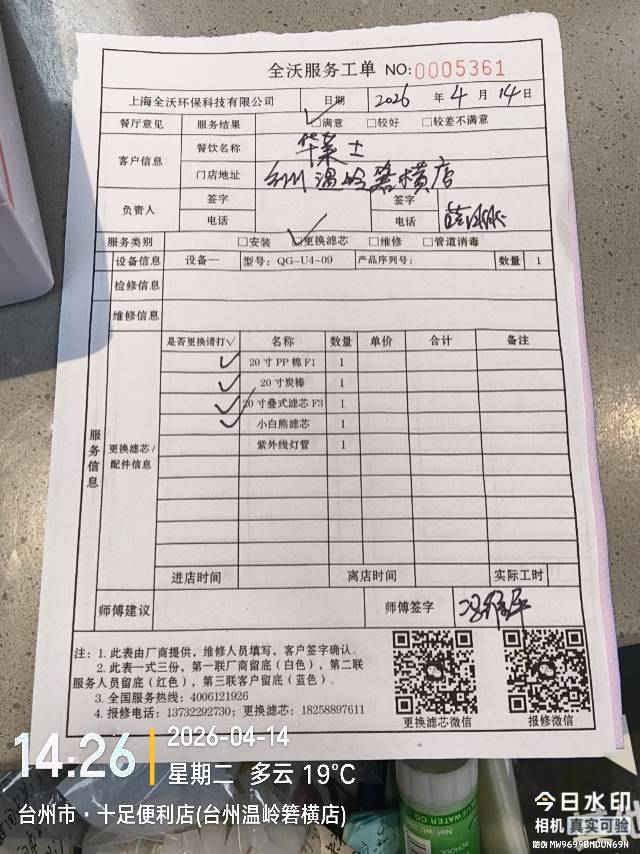 全沃服务工单 NO:0005361
上海全沃环保科技有限公司 日期 2026 年 4 月 14 日
餐厅意见 服务结果 ☑满意 □较好 □较差不满意
客户信息 餐饮名称 华莱士
门店地址 台州温岭箬横店
负责人 签字 签字
电话 电话
服务类别 □安装 ☑更换滤芯 □维修 □管道消毒
设备信息 设备一 型号: QG-U4-09 产品序列号: 数量 1
检修信息
维修信息
服务信息
更换滤芯/配件信息
是否更换请打√ 名称 数量 单价 合计 备注
✓ 20寸PP棉F1 1
✓ 20寸炭棒 1
✓ 20寸叠式滤芯F3 1
✓ 小白熊滤芯 1
紫外线灯管 1
进店时间 离店时间 实际工时
师傅建议 师傅签字
注: 1. 此表由厂商提供, 维修人员填写, 客户签字确认。
2. 此表一式三份, 第一联厂商留底(白色), 第二联
服务人员留底(红色), 第三联客户留底(蓝色)。
3. 全国服务热线: 4006121926
4. 报修电话: 13732292730; 更换滤芯: 18258897611
更换滤芯微信 报修微信
14:26
2026-04-14
星期二 多云 19°C
台州市·十足便利店(台州温岭箬横店)
今日水印
相机 真实可验
防伪 MW9699BMDUN69N